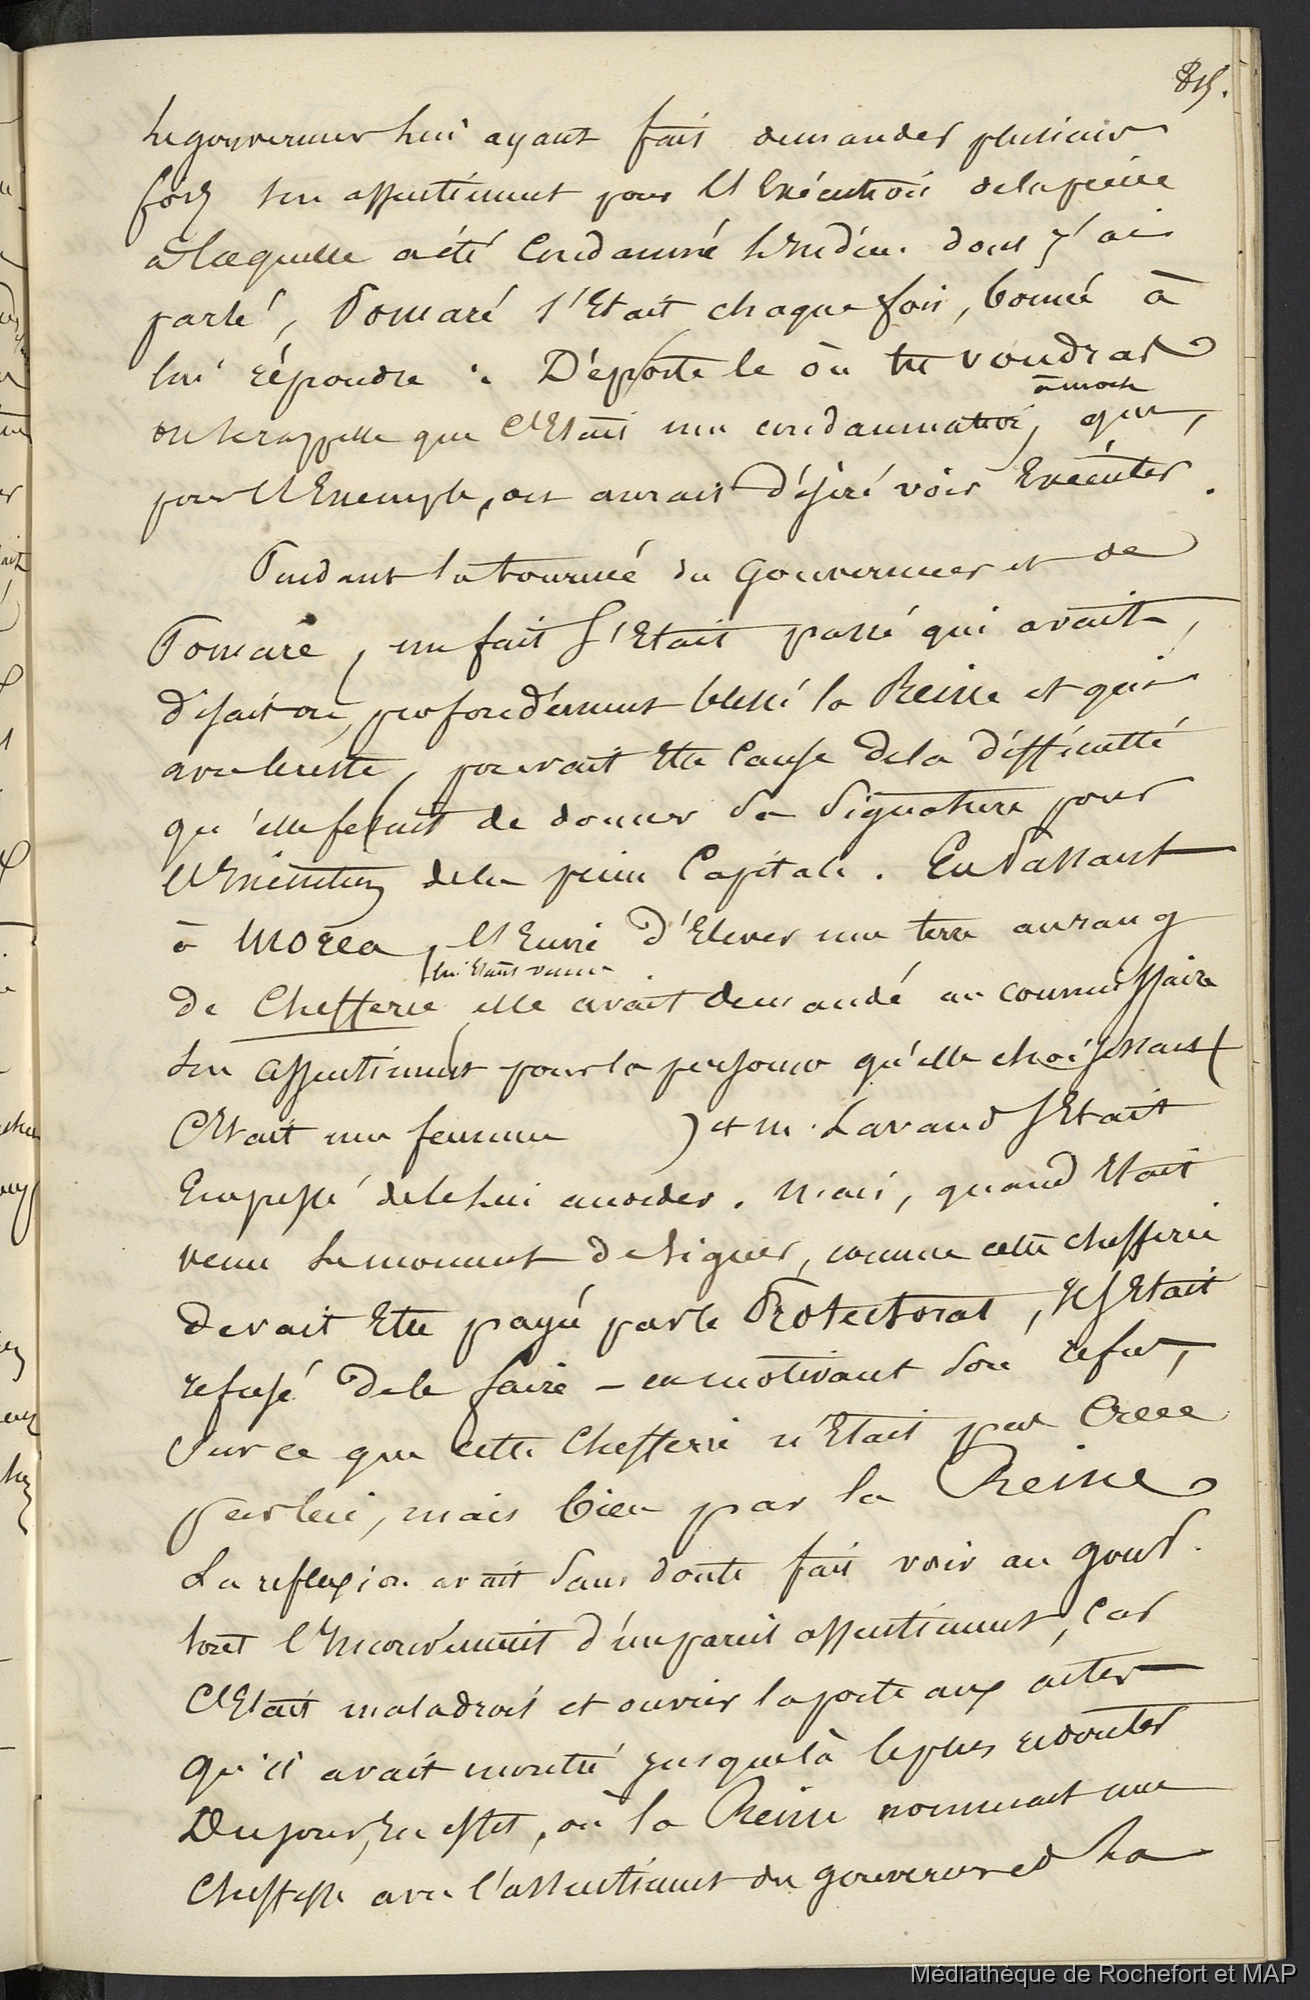 815.
Le gouverneur lui ayant fait demander plusieurs
fois son assentiment pour l'Exécution de la peine
à laquelle a été Condamné l'Indien dont j'ai
parlé, Pomaré s'Etait chaque fois, borné à
lui répondre : Déporte le où tu voudras
on se rappelle que c'Etait une condamnation, que,
à mort
pour l'Exemple, on aurait désiré voir Exécuter.
Pendant la tournée du Gouverneur et de
Pomaré, un fait s'Etait passé qui avait,
disait on, profondément blessé la Reine et qui
avec le reste, pouvait Etre Cause de la difficulté
qu'elle faisait de donner sa signature pour
l'Exécution de la peine Capitale. En Passant
à Moréa, l'Envie d'Elever une terre au rang
lui Etant venue
de Chefferie elle avait demandé au commissaire
son assentiment pour la personne qu'elle choisissait (
C'Etait une femme ) et M. Lavaud s'Etait
Empressé de le lui accorder. Mais, quand Etait
venu le moment de signer, comme cette chefferie
devait Etre payée par le Protectorat, Il s'Etait
refusé de le faire – en motivant son refus,
sur ce que cette Chefferie n'Etait pas Créée
par lui, mais bien par la Reine
La reflexion avait sans doute fait voir au gouv.
l'Inconvénient d'un pareil assentiment, Car
C'Etait maladroit et ouvrir la porte aux actes
qu'il avait montré jusque là le plus redouter
Du jour, En effet, où la Reine nommait une
Cheffesse avec l'assentiment du gouverneur la